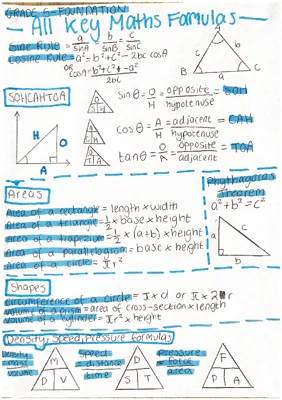 GRADE 5 - FOUNDATION
All Key Maths Formulas
Sine Rule = a/sinA = b/sinB = c/sinC
Cosine Rule = a² = b² + c² - 2bc cosA
OR
cosA = b² + c² - a² / 2bc
A
b
c
B
a
C
SOHCAHTOA
sinθ = O/H = opposite/hypotenuse = SOH
cosθ = A/H = adjacent/hypotenuse = CAH
tanθ = O/A = opposite/adjacent = TOA
H
O
A
O
S H
A
C H
O
T A
Areas
Area of a rectangle = length x width
Area of a triangle = ½ x base x height
Area of a trapezium = ½ x (a+b) x height
Area of a parallelogram = base x height
Area of a circle = πr²
Pythagoras
Theorem
a² + b² = c²
a
c
b
Shapes
circumference of a circle = π x d or π x 2 r
volume of a prism = area of cross-section x length
volume of a cylinder = πr² x height
Density, Speed, Pressure formulas
Density = mass/volume
M
D V
Speed = distance/time
D
S T
Pressure = force/area
F
P A